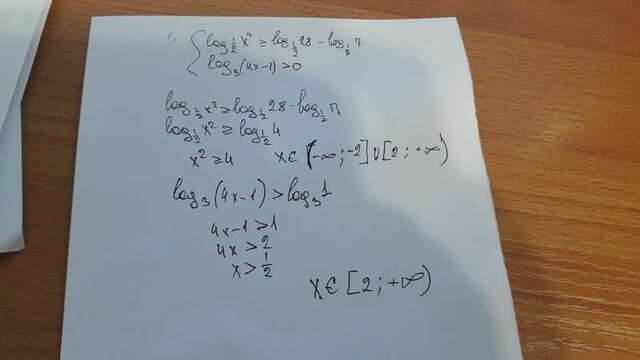 1. { log_{1/2} x² ≥ log_{1/2} 28 - log_{1/2} 7
log₃(4x-1) > 0
log_{1/2} x² ≥ log_{1/2} 28 - log_{1/2} 7
log_{1/2} x² ≥ log_{1/2} 4
x² ≥ 4 x ∈ (-∞; -2] ∪ [2; +∞)
log₃(4x-1) > log₃ 1
4x-1 > 1
4x > 2
x > 1/2
x ∈ [2; +∞)